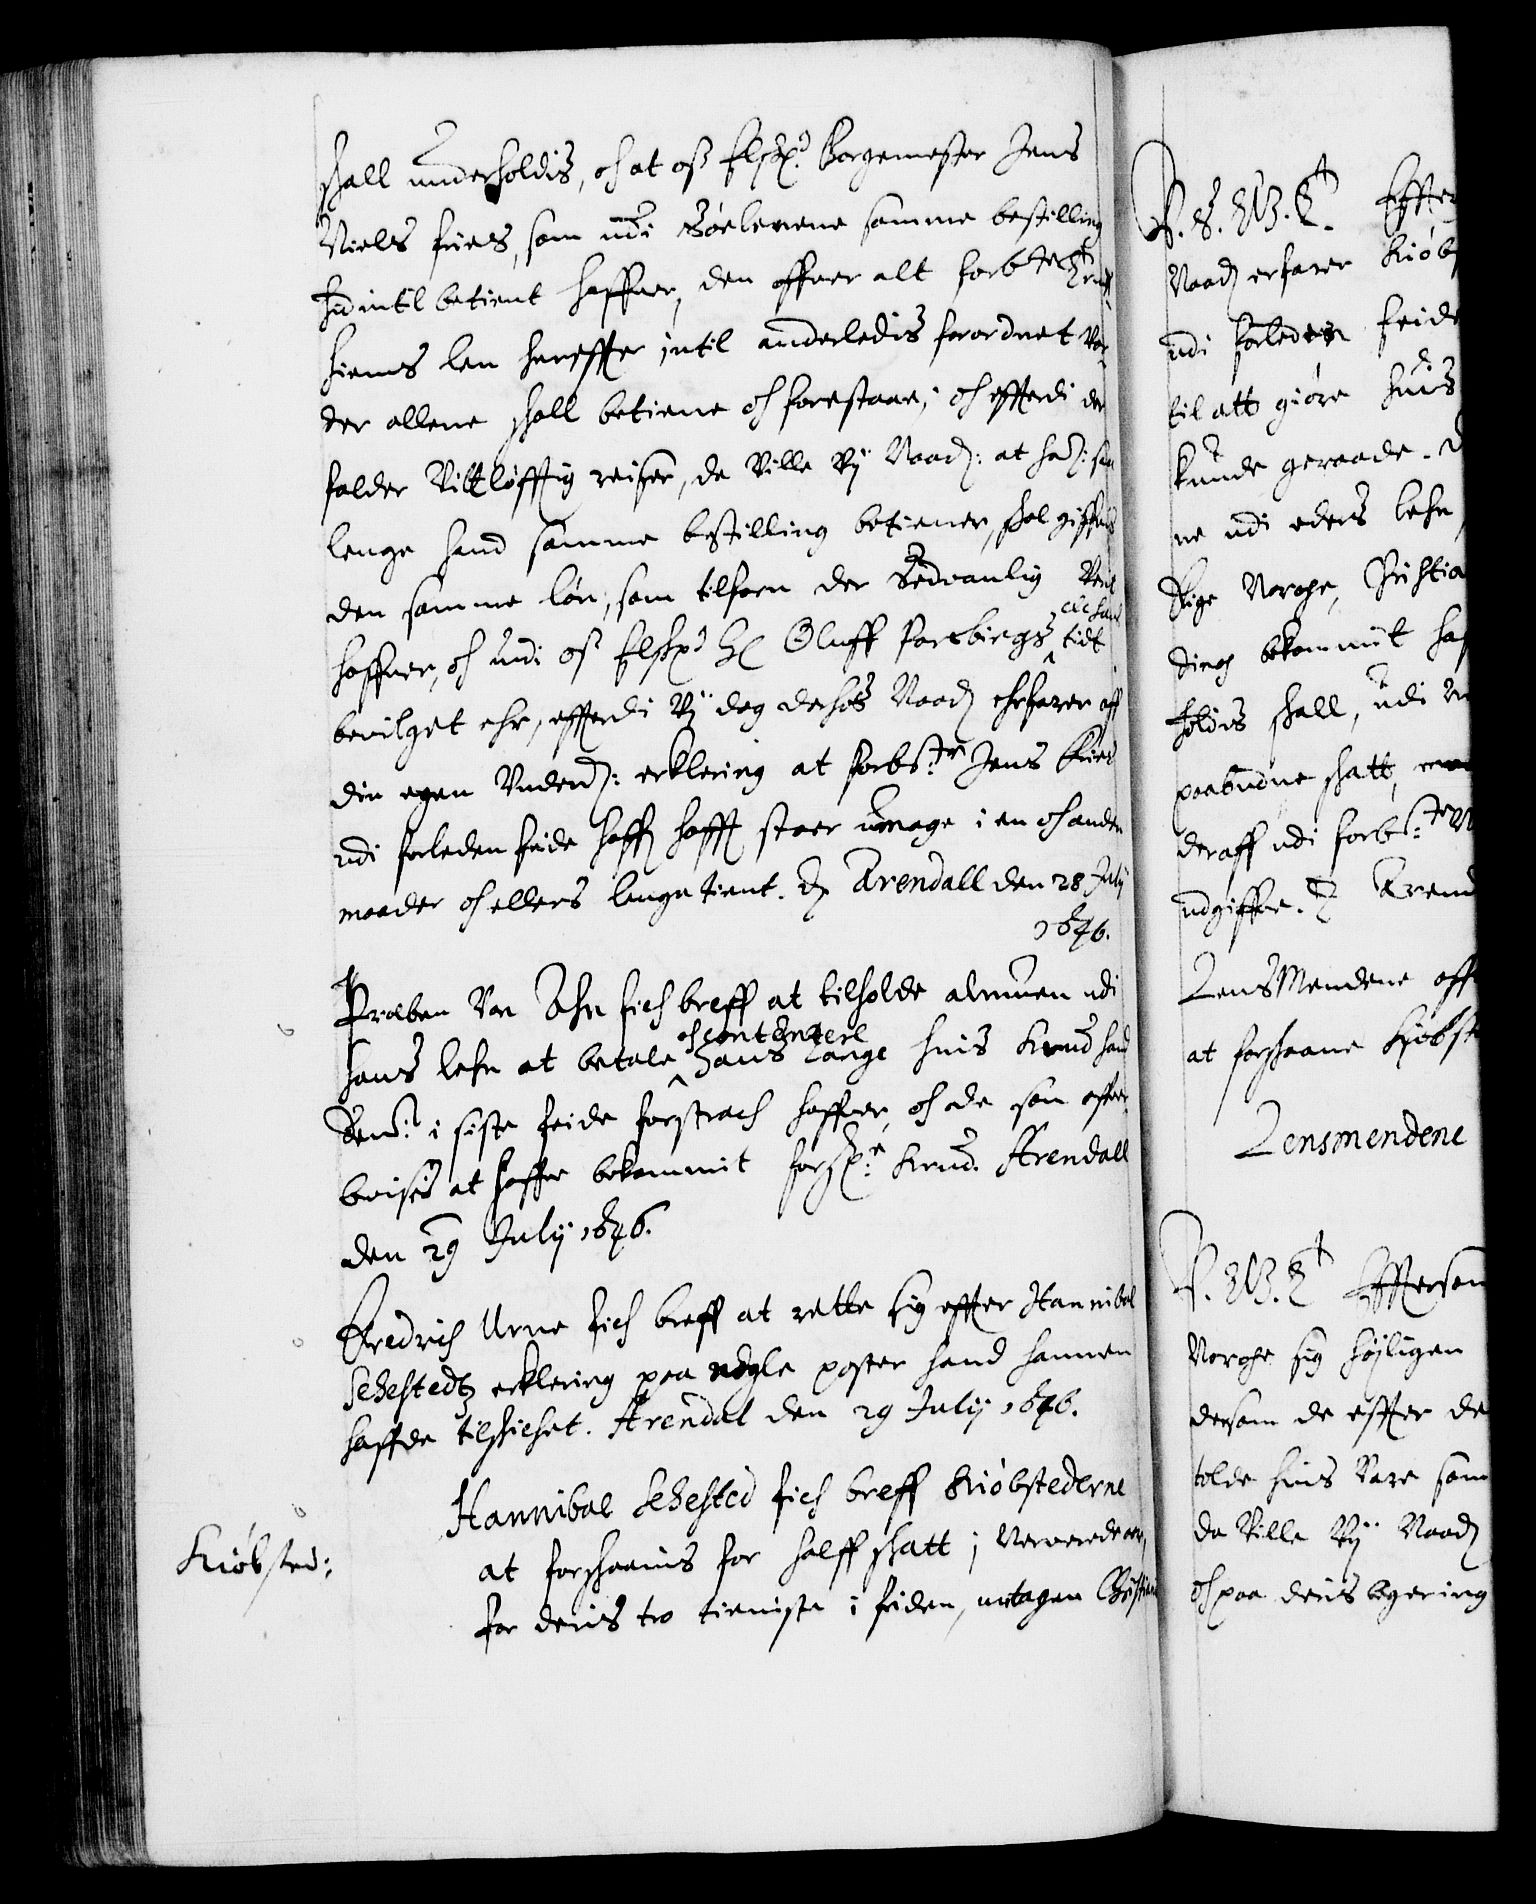 shall underholdis, och at oss Elsk: Borgemester Jens
Niels friis, som udi samme bestilling
hid indtil betient haffuer, den offuer alt forbte
hiems len hereffter indtil anderledis forordnet vor
der allene shall betiene och forestaae; och efftterdi der
falder Vittløfftig reiser, da Ville Vÿ Naad: at hand: saa
lenge hand samme bestilling betiener, skal giffuis
den samme løn, som tilforn der Sedvanlig Verit
haffuer, och udi oss Elsk: Her Oluff Parsbiergs all hans tidt
bevilget ehr, effterdi Vÿ dog deshos Naad: ehrfarer aff
din egen Underd: erklering at forbte: Jens friis
udi forleden feide haffr hafft stoer umage i en och anden
maader och ellers lenge tient. Arendall den 28 July
1646.
Præben Von Ahn fich breff at tilholde almuen udi
hans lehn at betale och contentere Hans Lange huis Krud hand
dennem i siste feide forstrach haffuer, och de som
bevisis at haffue bekommit forsk:ne Krud. Arendall
den 29 Julij 1646.
Fredrich Urne fich breff at rette sig effter Hannibal
Sehestedtz erklering paa nogle poster hand hannem
haffde tilskichet. Arendal den 29 Julij 1646.
Kiøbsted:
Hannibal Sehested fich breff Kiøbstederne
at forskaanis for halff skatt i Nerverede aar,
for deris tro tieniste i feiden, untagen Christian
Effter
Naad: erfarer Kiøb
udi forleden feide
til att giøre huis
kunde geraade.
ne udi eders lehn,
Rige Norge, Christia
dirch bekommit haf
holdis skall, udi
paabudne skatt,
deraff udi forbte
udgiffue. Arend
LensMendene off
at forskaane Kiøbste
Lensmendene
Efftersom
Norge sig høÿligen
dersom de effter de
tolde huis Vare som
da Ville Vÿ Naad:
och paa deris begering